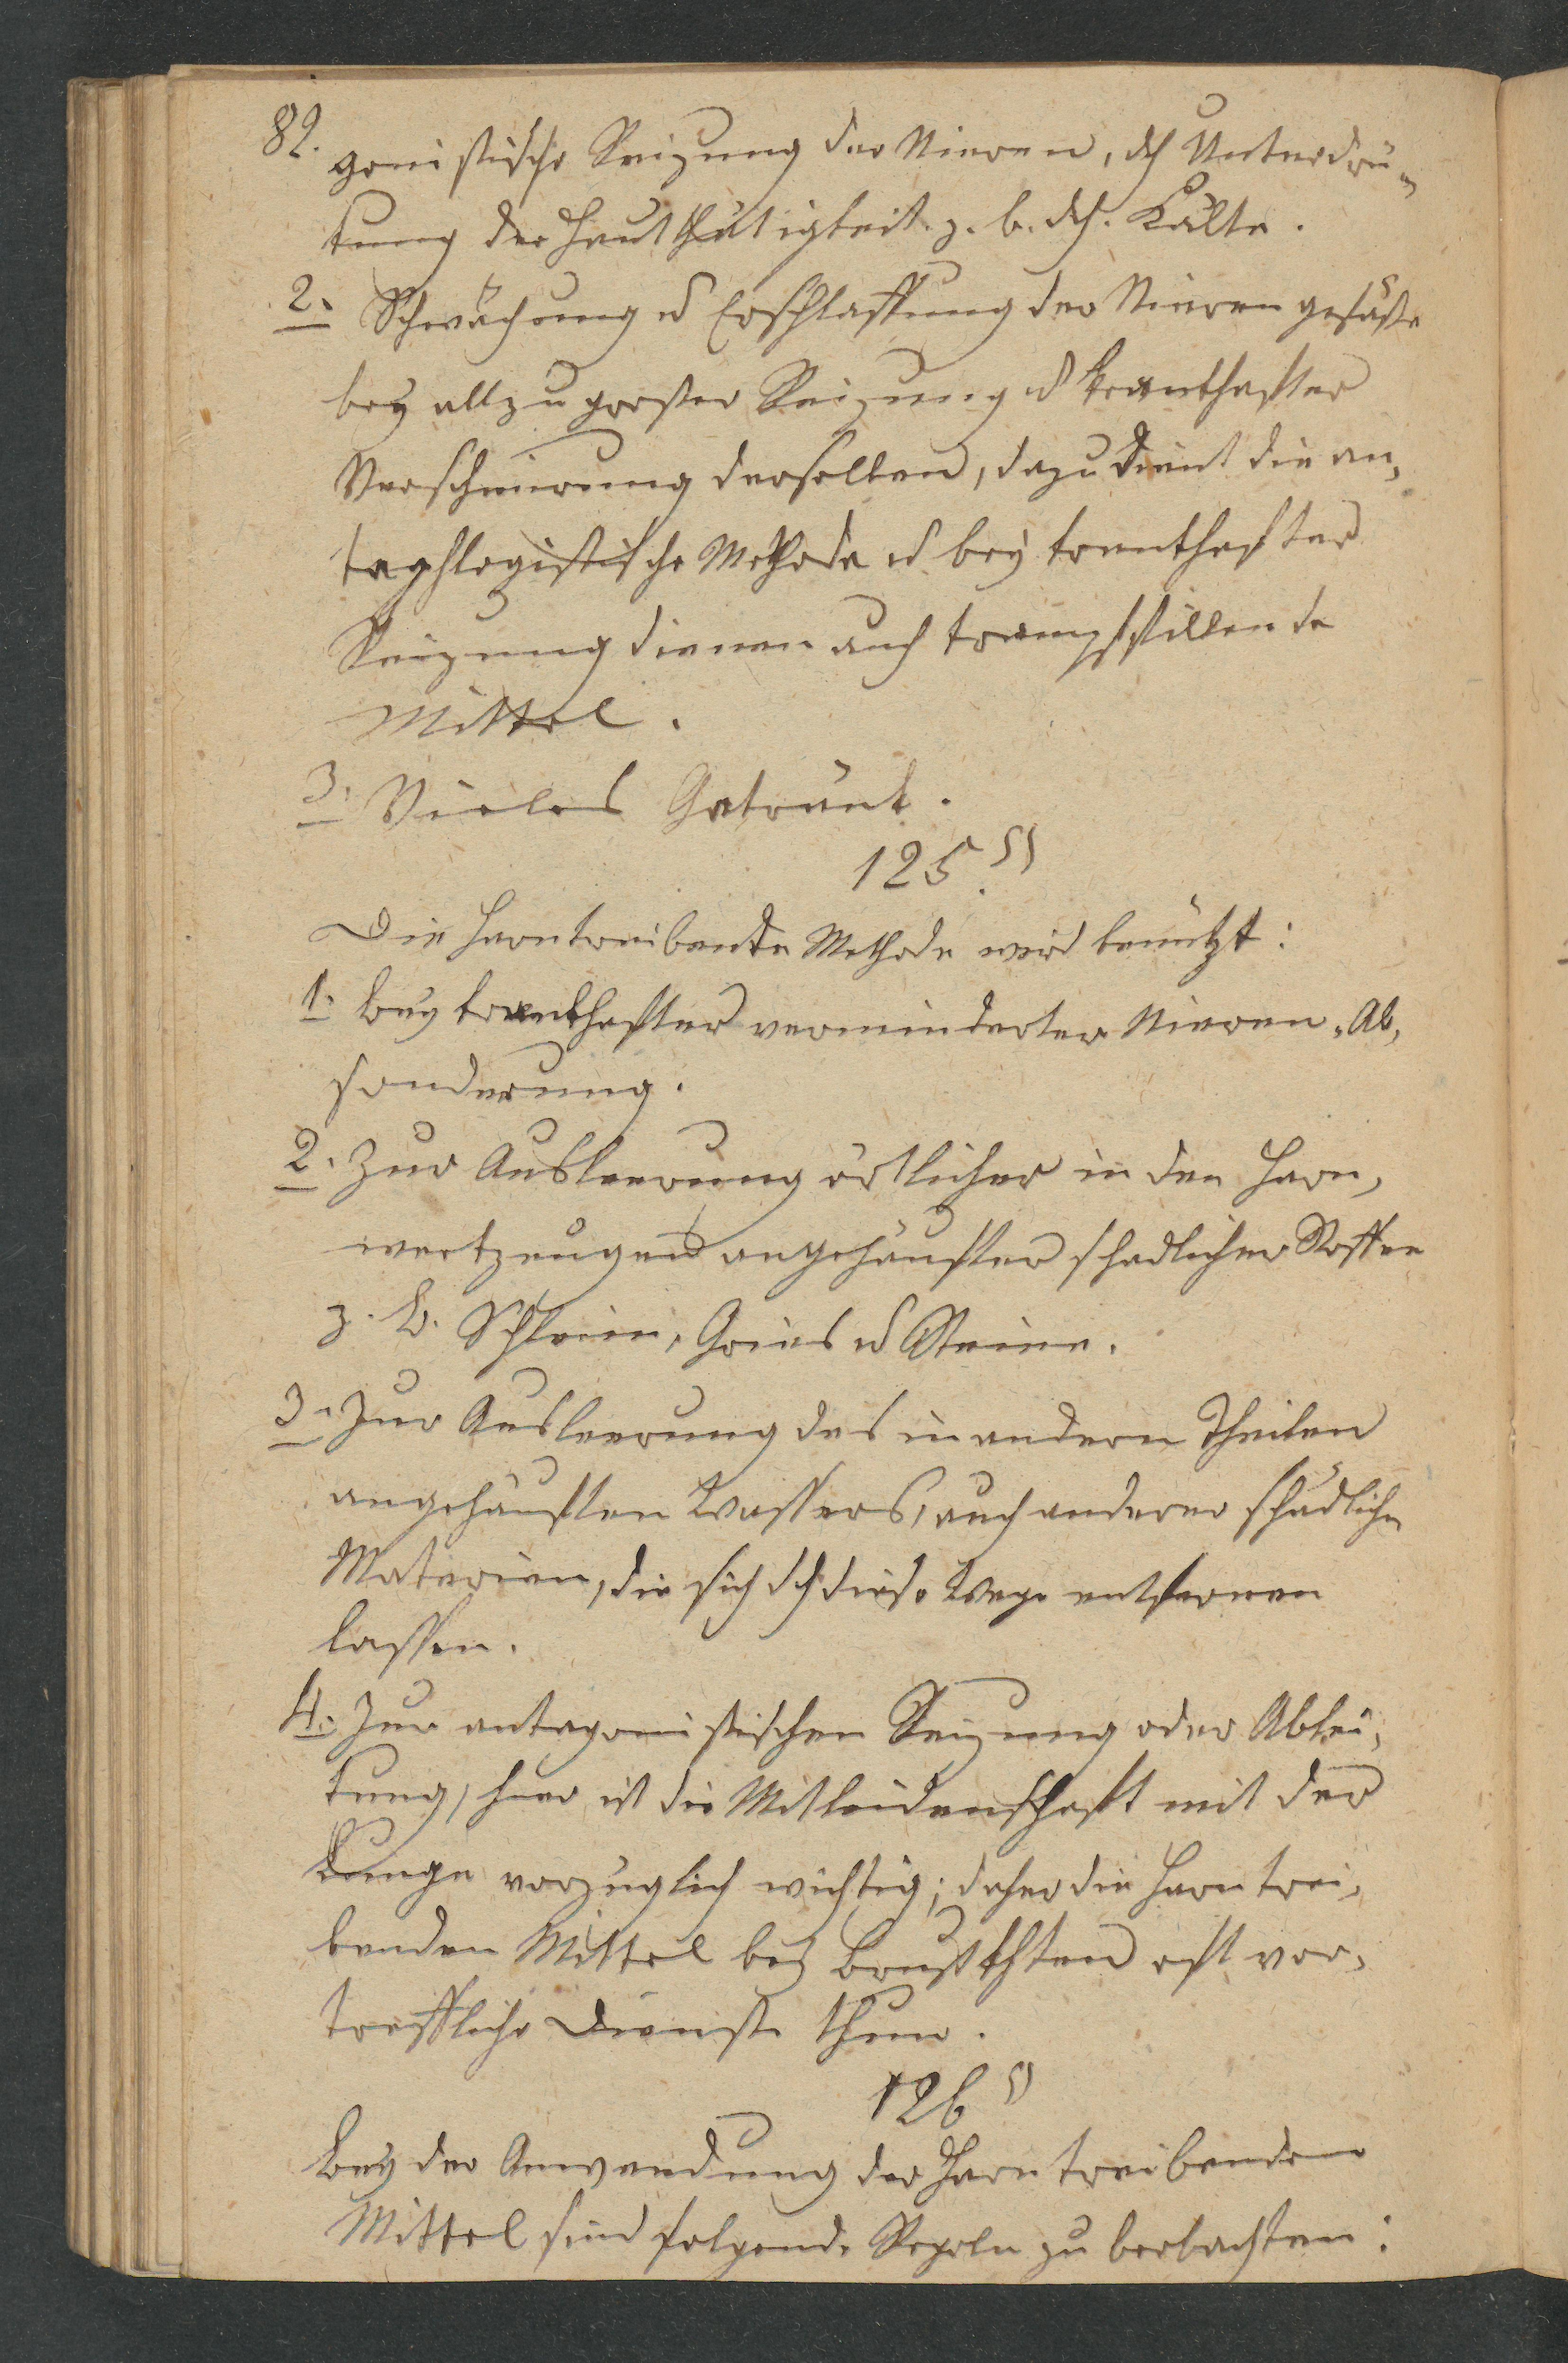 82.
gonistische Reizung der Nieren, dch Unterdrü-
kung der Hautthätigkeit z. b. dch. Kälte.
2. Schwächung u Erschlaffung der Nieren gefäße
bey allzu großer Reizung u krankhafter
Verschnürung derselben, dazu dient die an-
tiphlogistische Methode u bey krankhafter
Reizung dienen auch krampfstillende
Mittel.
3. Vieles Getränk.
125 §
Die Harntreibende Methode wird benützt:
1. Bey krankhafter verminderter Nieren-Ab-
sonderung.
2. Zur Ausleerung örtlicher in den Harn-
werkzeugen angehäufter schadlicher Stoffen
z. B. Schleim, Gries u Steine.
3. Zur Ausleerung des in andern Theilen
angehäuften Wassers, auch anderer schädliche
Materien, die sich dch diese Wege entfernen
lassen.
4. Zur antagonistischen Reizung oder Ablei-
tung, hier ist die Mitleidenschaft mit der
Lunge vorzüglich wichtig; daher die Harntrei-
benden Mittel bey oft vor-
treffliche Dienste thun.
126 §
Bey der Anwendung der Harn treibenden
Mittel sind folgende Regeln zu beobachten: